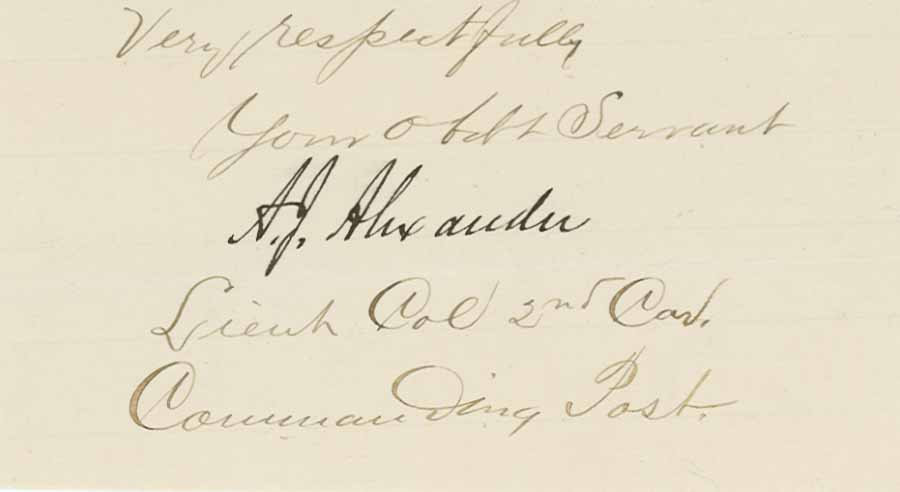 Very respectfully
Your Obdt Servant
A.J. Alexander
Lieut Col 2nd Cav.
Commanding Post.